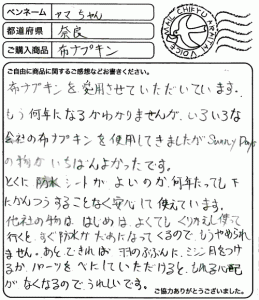 ペンネーム ヤマちゃん
都道府県 奈良
ご購入商品 布ナプキン
MAIL CHIEYU ARATAI VOICE
ご自由に商品に関するご感想などお書きください。
布ナプキンを愛用させていただいています。
もう何年になるかわかりませんが、いろいろな
会社の布ナプキンを使用してきましたがSunny Days
の物がいちばんよかったです。
とくに防水シートがよいのか、何年たっても下
にかんつうすることなく安心して使えています。
他社の物は、はじめはよくてもくりかえし使って
行くとすぐ防水がだめになってくるので、もうやめられ
ません。あと、できれば羽のぶぶんに、ミシン目をつけ
るか、パーツをべにしていただけると、もれる心配
がなくなるのでうれしいです。
ご協力ありがとうございました。